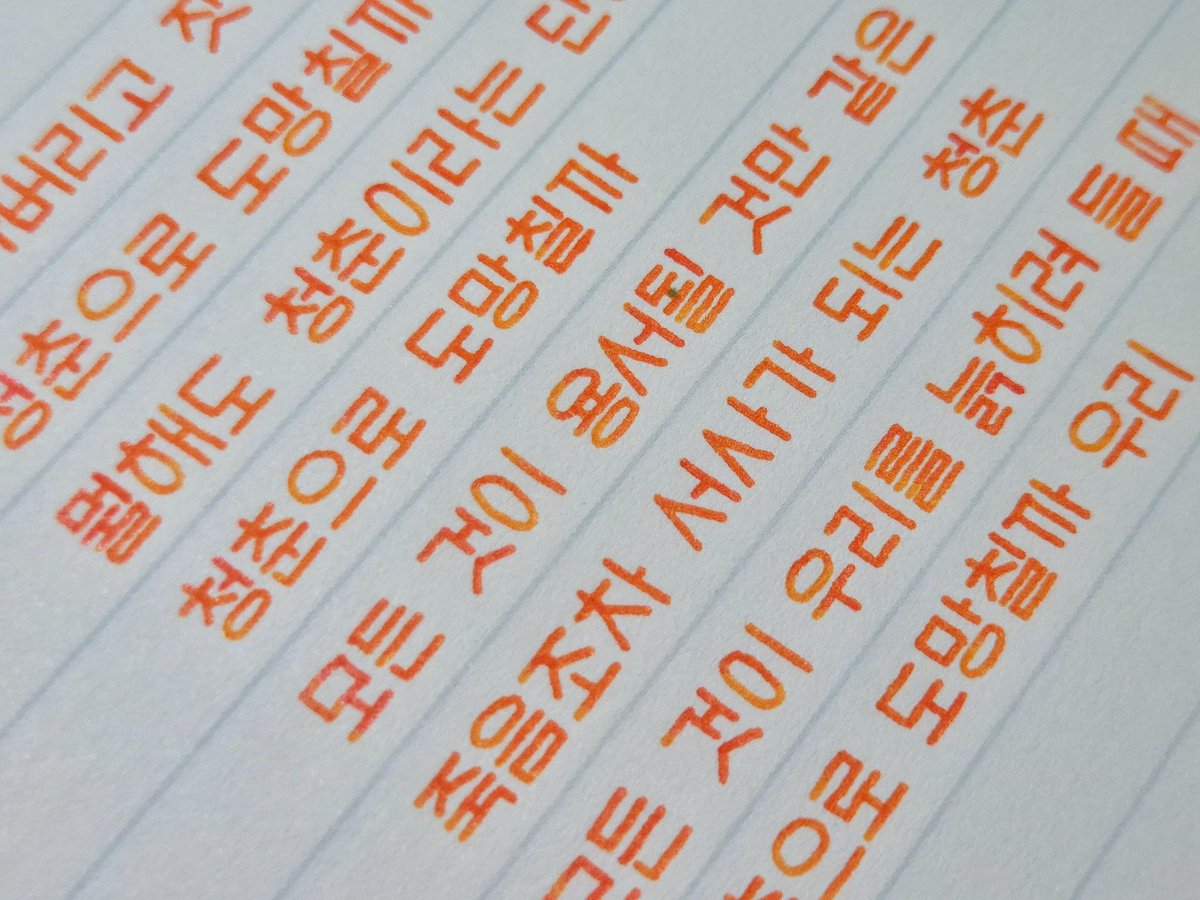 버리고
청춘으로 도망칠까
뭘해도 청춘이라는
청춘으로 도망칠까
모든 것이 용서될 것만 같은
죽음조차 서사가 되는 청춘
모든 것이 우리를 늙히려 들 때
청춘으로 도망칠까 우리